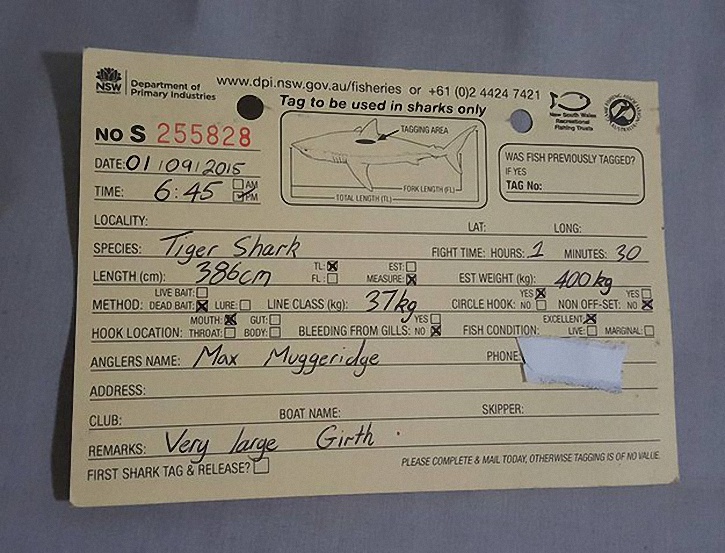 NSW Department of Primary Industries www.dpi.nsw.gov.au/fisheries or +61 (0)2 4424 7421
Tag to be used in sharks only
New South Wales Recreational Fishing Trusts
No S 255828
TAGGING AREA
FORK LENGTH (FL)
TOTAL LENGTH (TL)
WAS FISH PREVIOUSLY TAGGED?
IF YES
TAG No:
DATE: 01/09/2015
TIME: 6:45 AM PM
LOCALITY: LAT: LONG:
SPECIES: Tiger Shark FIGHT TIME: HOURS: 1 MINUTES: 30
LENGTH (cm): 386cm TL: FL: EST: MEASURE: EST WEIGHT (kg): 400kg
METHOD: LIVE BAIT: DEAD BAIT: LURE: LINE CLASS (kg): 37kg CIRCLE HOOK: YES NO NON OFF-SET: YES NO
HOOK LOCATION: MOUTH: THROAT: GUT: BODY: BLEEDING FROM GILLS: YES NO FISH CONDITION: EXCELLENT: LIVE: MARGINAL:
ANGLERS NAME: Max Muggeridge PHONE
ADDRESS:
CLUB: BOAT NAME: SKIPPER:
REMARKS: Very large Girth.
FIRST SHARK TAG & RELEASE? PLEASE COMPLETE & MAIL TODAY, OTHERWISE TAGGING IS OF NO VALUE.